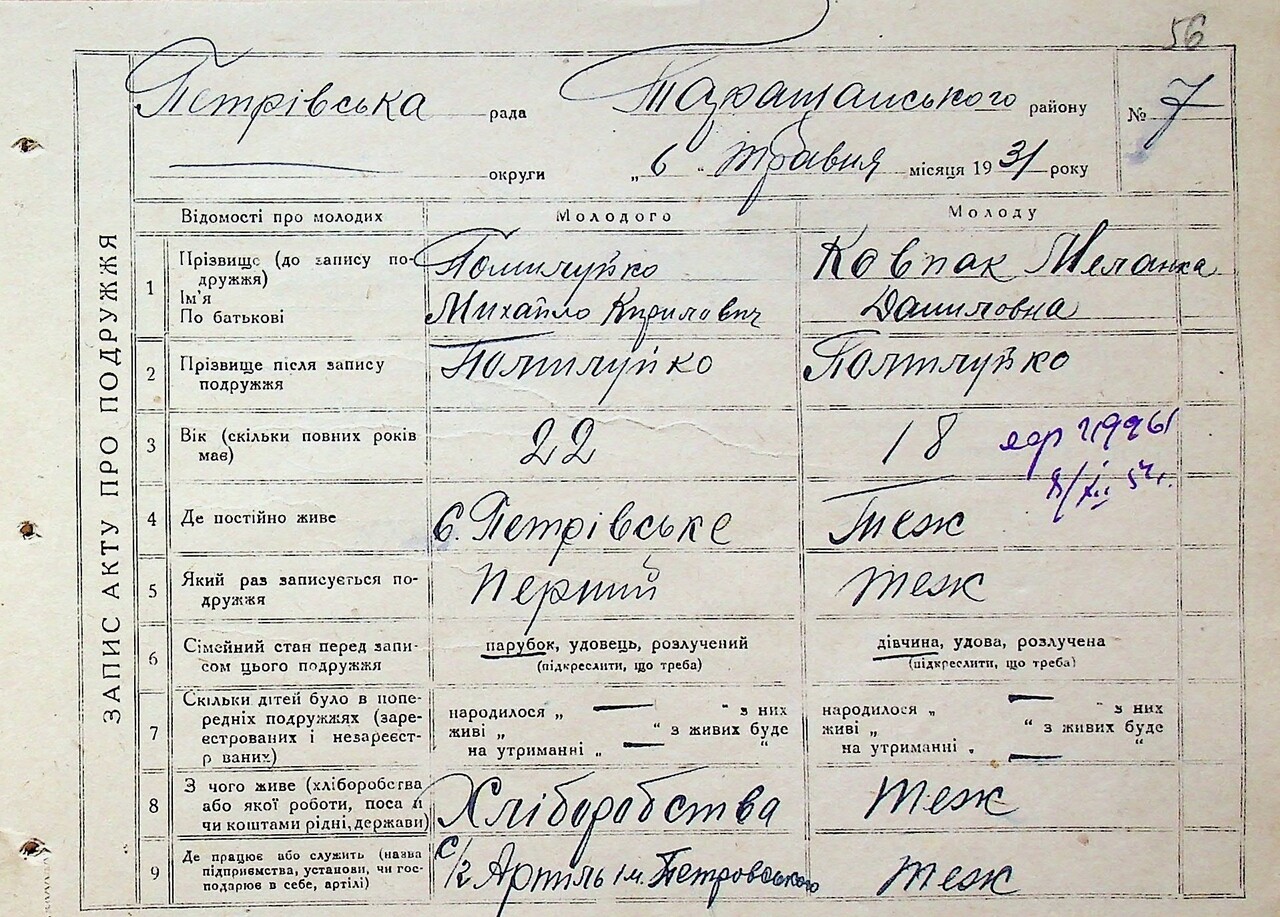 56
Петрівська рада Таращанського району № 7
округи „ 6 “ травня місяця 1931 року
ЗАПИС АКТУ ПРО ПОДРУЖЖЯ
Відомості про молодих Молодого Молоду
1 Прізвище (до запису по-
дружжя)
Ім'я
По батькові
Михайло Кирилович
Ковпак Меланка
Даниловна
2 Прізвище після запису
подружжя
3 Вік (скільки повних років
має) 22 18
4 Де постійно живе с. Петрівське Теж
5 Який раз записується по-
дружжя Перший теж
6 Сімейний стан перед запи-
сом цього подружжя
парубок, удовець, розлучений
(підкреслити, що треба)
дівчина, удова, розлучена
(підкреслити, що треба)
7 Скільки дітей було в попе-
редніх подружжях (заре-
естрованих і незареєст-
р ваних)
народилося „ — “ з них
живі „ “ з живих буде
на утриманні „ — “
народилося „ — “ з них
живі „ “ з живих буде
на утриманні „ — “
8 З чого живе (хліборобства
або якої роботи, поса и
чи коштами рідні, держави)
Хліборобства теж
9 Де працює або служить (назва
підприємства, установи, чи гос-
подарює в себе, артілі)
с/г Артиль ім. Петровського теж